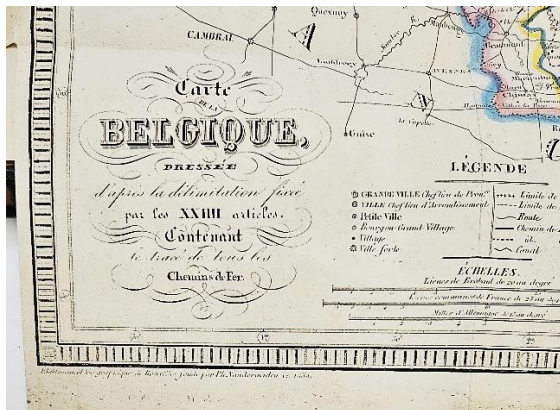 Quesnoy
CAMBRAI
Maubeuge
Beaumont
Landrecy
AVESNES
Chimay
la Capelle
Guise
Carte
DE LA
BELGIQUE,
DRESSÉE
d'après la délimitation fixée
par les XXIIII articles.
Contenant
le tracé de tous les
Chemins de Fer.
LÉGENDE
GRANDE VILLE Chef lieu de Prov.ce
VILLE Chef lieu d'Arrondissement
Petite Ville
Bourg ou Grand Village
Village
Ville forte
Limite de
Limite de
Route
Chemin de
id.
Canal
ÉCHELLES.
Lieues de Brabant de 20 au degré
Lieues communes de France de 25 au deg
Milles d'Allemagne de 15 au degré
Etablissement Géographique de Bruxelles fondé par Ph. Vandermaelen